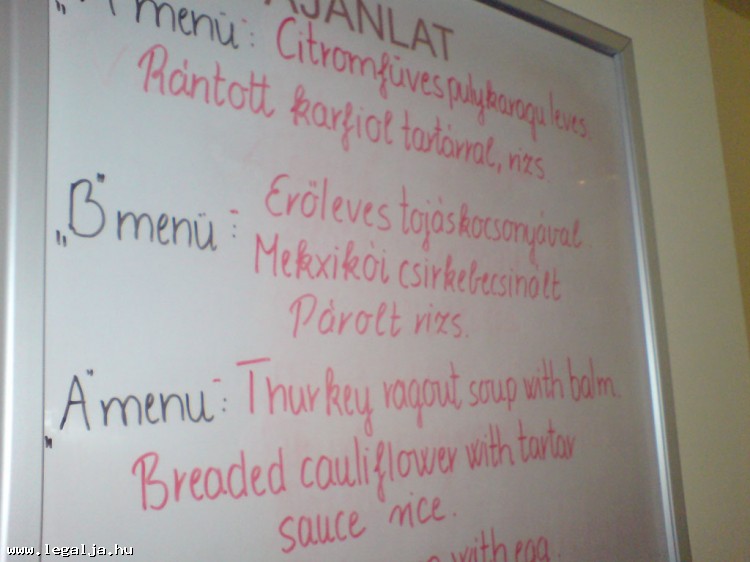 AJÁNLAT
„A" menü: Citromfüves pulykaragu leves.
Rántott karfiol tartárral, rizs
„B" menü: Erőleves tojáskocsonyával
Mekxikói csirkebecsinált
Párolt rizs.
„A" menu: Thurkey ragout soup with balm.
Breaded cauliflower with tartar
sauce rice.
with egg.
www.legalja.hu